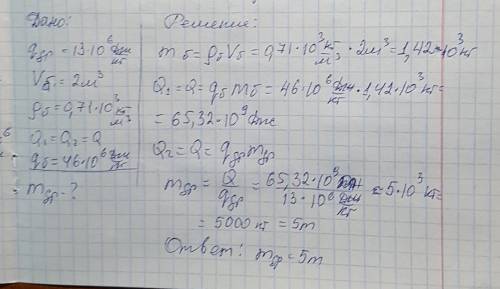 Дано:
qдр = 13·10⁶ Дж/кг
Vб = 2м³
ρб = 0,71·10³ кг/м³
Q₁ = Q₂ = Q
qб = 46·10⁶ Дж/кг
mдр - ?
Решение:
mб = ρб Vб = 0,71·10³ кг/м³ · 2м³ = 1,42·10³ кг
Q₁ = Q = qб mб = 46·10⁶ Дж/кг · 1,42·10³ кг =
= 65,32·10⁹ Дж
Q₂ = Q = qдр mдр
mдр = Q/qдр = 65,32·10⁹ Дж / 13·10⁶ Дж/кг ≈ 5·10³ кг =
= 5000 кг = 5т
Ответ: mдр = 5т